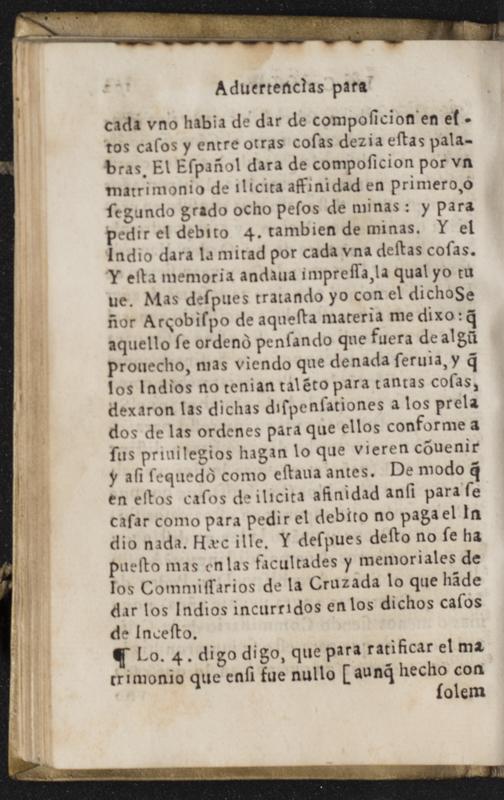 Aduertencias para
cada vno habia de dar de composicion en es-
tos casos y entre otras cosas dezia estas pala-
bras. El Español dara de composicion por vn
matrimonio de ilicita affinidad en primero, o
segundo grado ocho pesos de minas: y para
pedir el debito 4. tambien de minas. Y el
Indio dara la mitad por cada vna destas cosas.
Y esta memoria andaua impressa, la qual yo tu
ue. Mas despues tratando yo con el dicho Se
ñor Arçobispo de aquesta materia me dixo: q̃
aquello se ordenò pensando que fuera de algũ
prouecho, mas viendo que denada seruia, y q̃
los Indios no tenian talẽto para tantas cosas,
dexaron las dichas dispensationes a los prela
dos de las ordenes para que ellos conforme a
sus priuilegios hagan lo que vieren cõuenir
y asi sequedò como estaua antes. De modo q̃
en estos casos de ilicita afinidad ansi para se
casar como para pedir el debito no paga el In
dio nada. Hæc ille. Y despues desto no se ha
puesto mas en las facultades y memoriales de
los Commissarios de la Cruzada lo que hãde
dar los Indios incurridos en los dichos casos
de Incesto.
¶ Lo. 4. digo digo, que para ratificar el ma
trimonio que ensi fue nullo [aunq̃ hecho con
solem